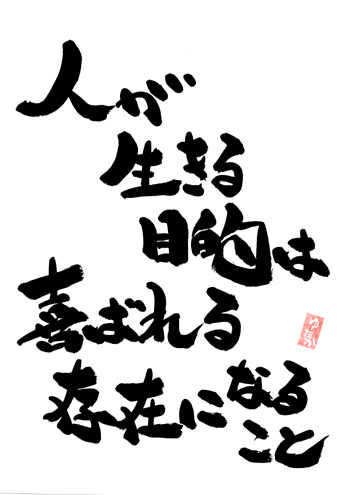 人が
生きる
目的は
喜ばれる
存在になる
こと
ゆたか